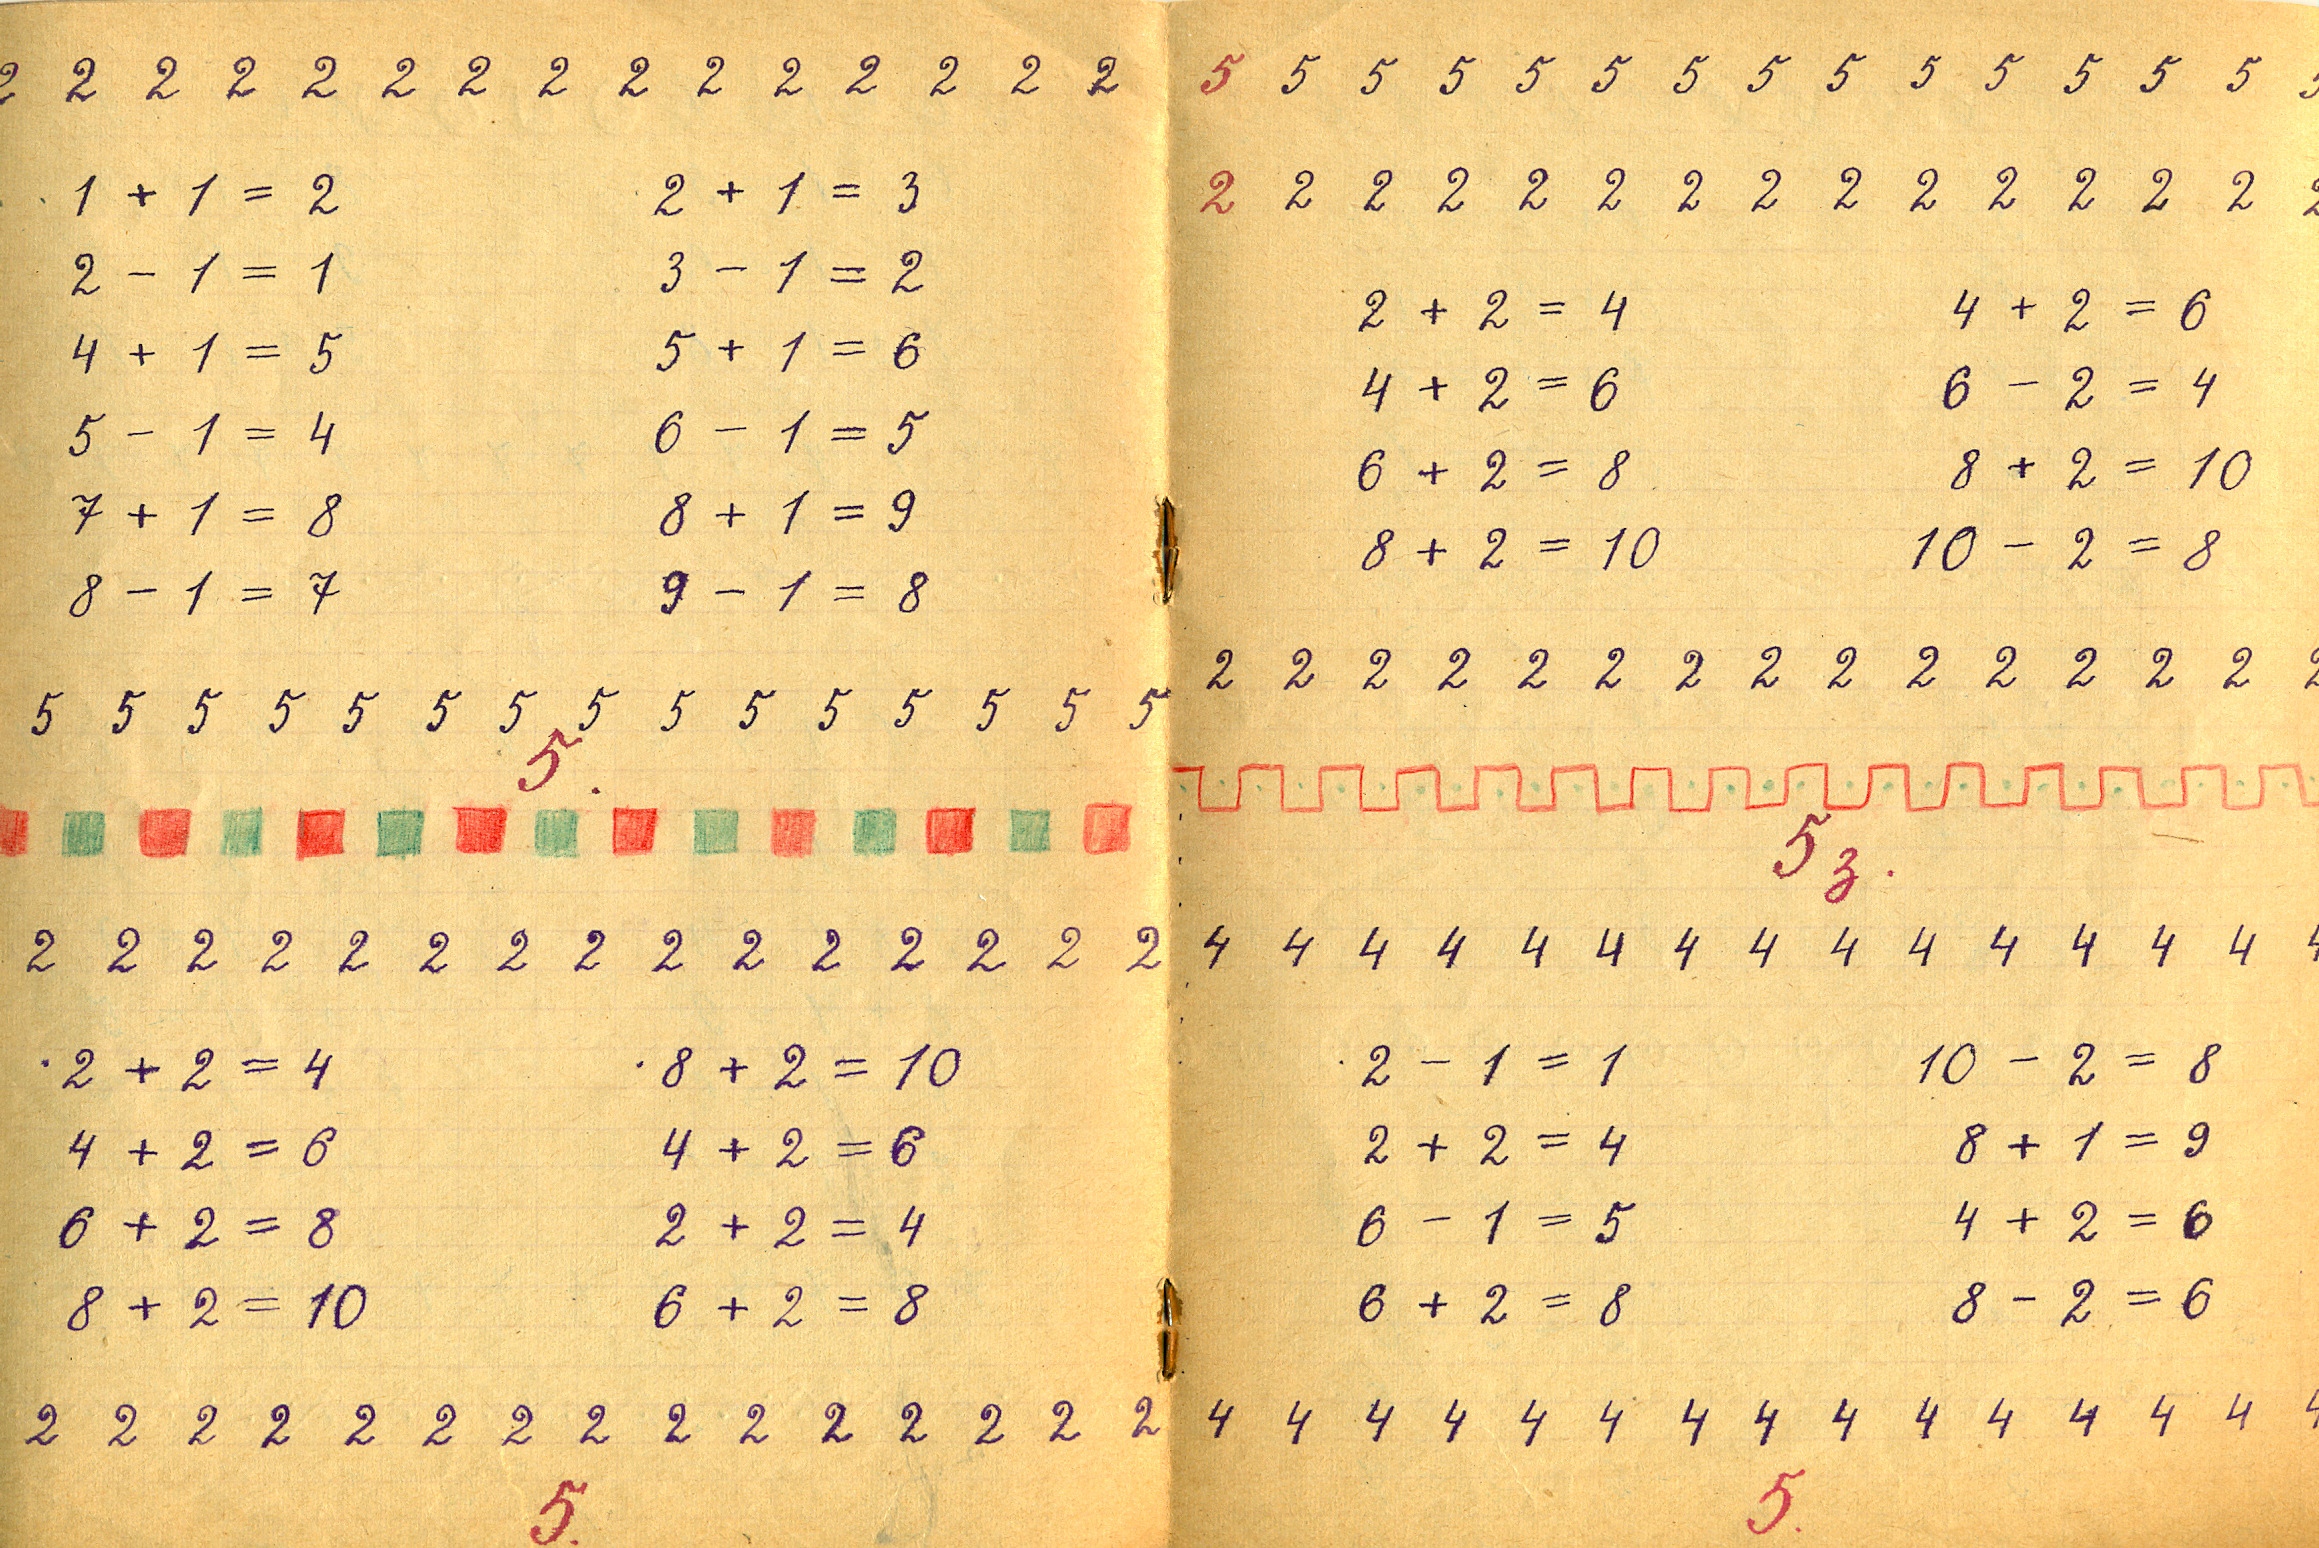 2 2 2 2 2 2 2 2 2 2 2 2 2 2 2
1 + 1 = 2 2 + 1 = 3
2 - 1 = 1 3 - 1 = 2
4 + 1 = 5 5 + 1 = 6
5 - 1 = 4 6 - 1 = 5
7 + 1 = 8 8 + 1 = 9
8 - 1 = 7 9 - 1 = 8
5 5 5 5 5 5 5 5 5 5 5 5 5 5 5
5.
2 2 2 2 2 2 2 2 2 2 2 2 2 2 2
2 + 2 = 4 8 + 2 = 10
4 + 2 = 6 4 + 2 = 6
6 + 2 = 8 2 + 2 = 4
8 + 2 = 10 6 + 2 = 8
2 2 2 2 2 2 2 2 2 2 2 2 2 2 2
5.
5 5 5 5 5 5 5 5 5 5 5 5 5 5 5
2 2 2 2 2 2 2 2 2 2 2 2 2 2 2
2 + 2 = 4 4 + 2 = 6
4 + 2 = 6 6 - 2 = 4
6 + 2 = 8 8 + 2 = 10
8 + 2 = 10 10 - 2 = 8
2 2 2 2 2 2 2 2 2 2 2 2 2 2 2
5 з.
4 4 4 4 4 4 4 4 4 4 4 4 4 4 4
2 - 1 = 1 10 - 2 = 8
2 + 2 = 4 8 + 1 = 9
6 - 1 = 5 4 + 2 = 6
6 + 2 = 8 8 - 2 = 6
4 4 4 4 4 4 4 4 4 4 4 4 4 4 4
5.